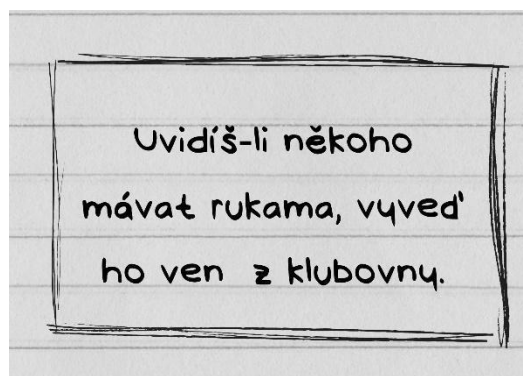 Uvidíš-li někoho
mávat rukama, vyveď
ho ven z klubovny.